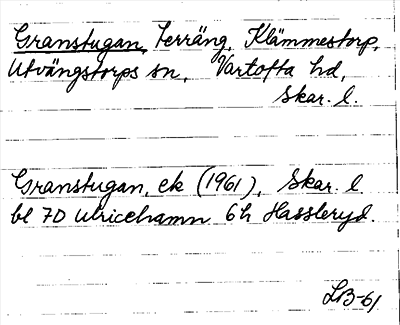 Granstugan, terräng, Klämmestorp,
Utvängstorps sn, Vartofta hd,
Skar. l.
Granstugan, ek (1961), Skar. l
bl 7D Ulricehamn 6h Hassleryd.
LB-61